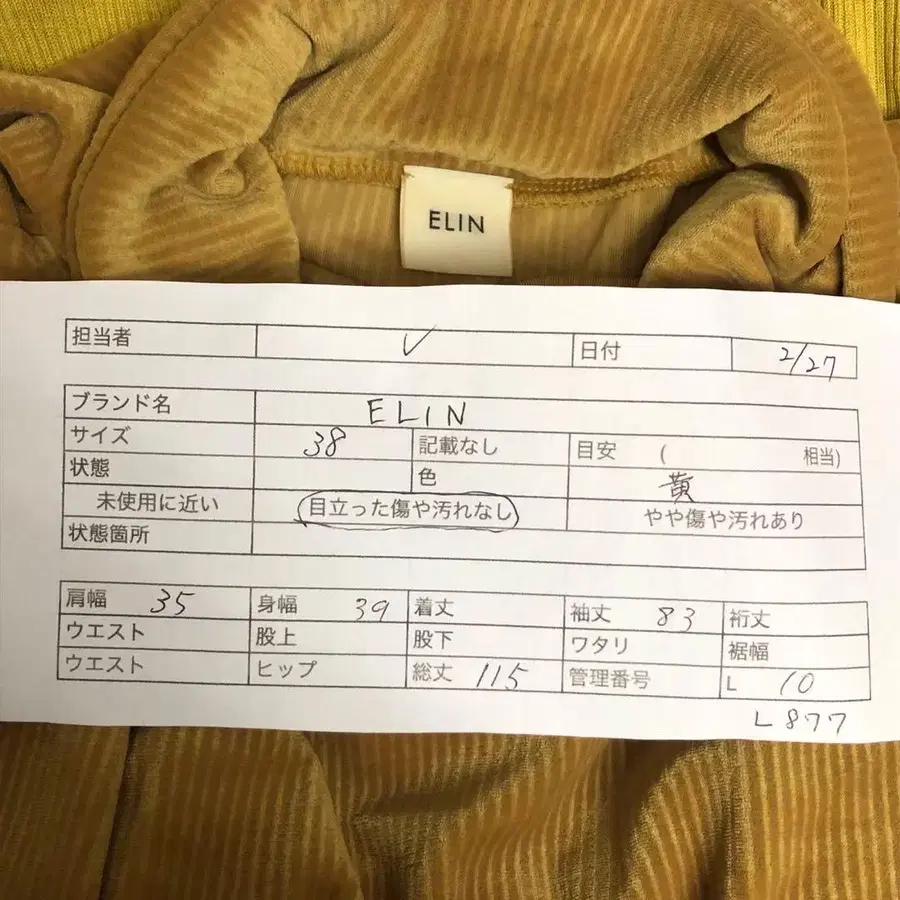 ELIN
担当者 ✓ 日付 2/27
ブランド名 ELIN
サイズ 38 記載なし 目安 ( 相当)
状態 色 黄
未使用に近い 目立った傷や汚れなし やや傷や汚れあり
状態箇所
肩幅 35 身幅 39 着丈 袖丈 83 裄丈
ウエスト 股上 股下 ワタリ 裾幅
ウエスト ヒップ 総丈 115 管理番号 L 10
L877